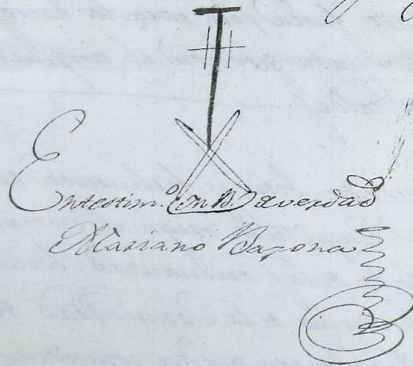 En testim.º (M B.) de verdad
Mariano Bazona